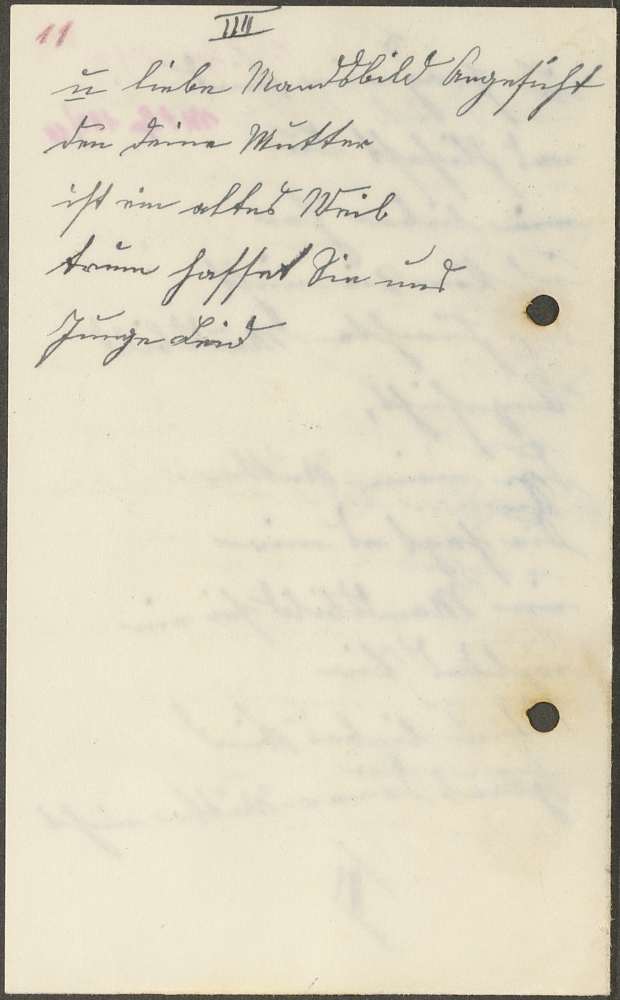 11
IIII
u liebe Mandsbild Angesicht
den deine Mutter
ist ein altes Weib
trum hasset Sie und
Junge Leid